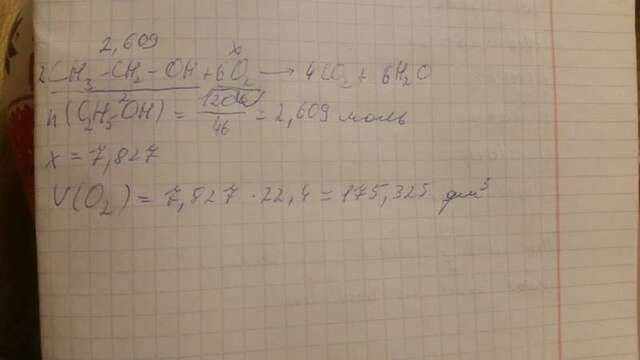 2,609 x
2CH₃-CH₂-OH+6O₂ → 4CO₂+ 6H₂O
2
n(C₂H₅OH) = 120 / 46 = 2,609 моль
x = 7,827
V(O₂) = 7,827 · 22,4 = 175,325 дм³